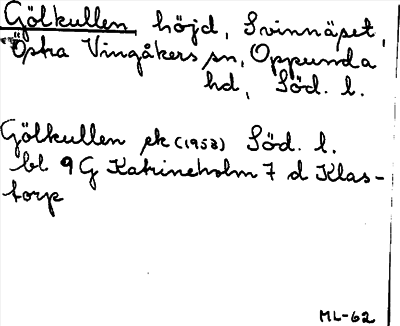 Gölkullen höjd, Svinnäset,
Östra Vingåkers sn, Oppunda
hd, Söd. l.
Gölkullen ek (1958) Söd. l.
bl 9 G Katrineholm 7 d Klas-
torp
ML-62